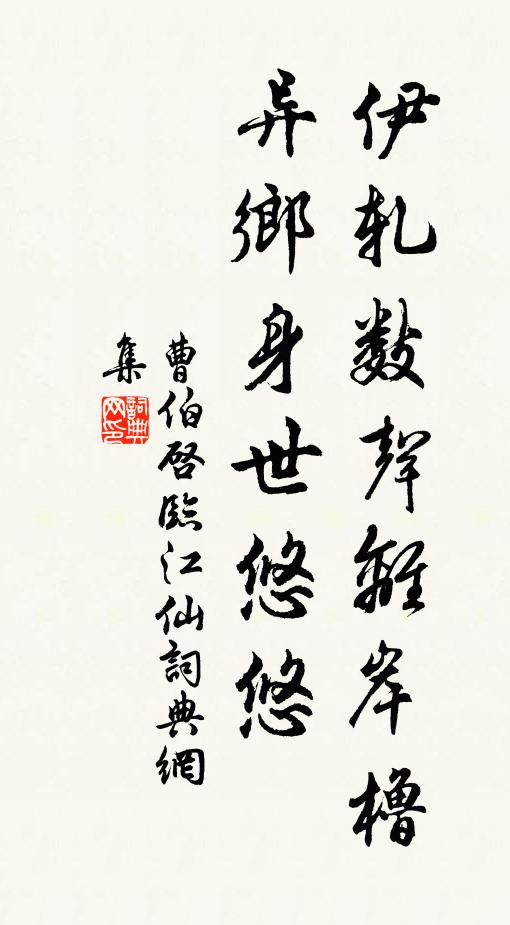 伊軋數聲離岸櫓
异鄉身世悠悠
曹伯啓臨江仙詞典網
集
詞典網印